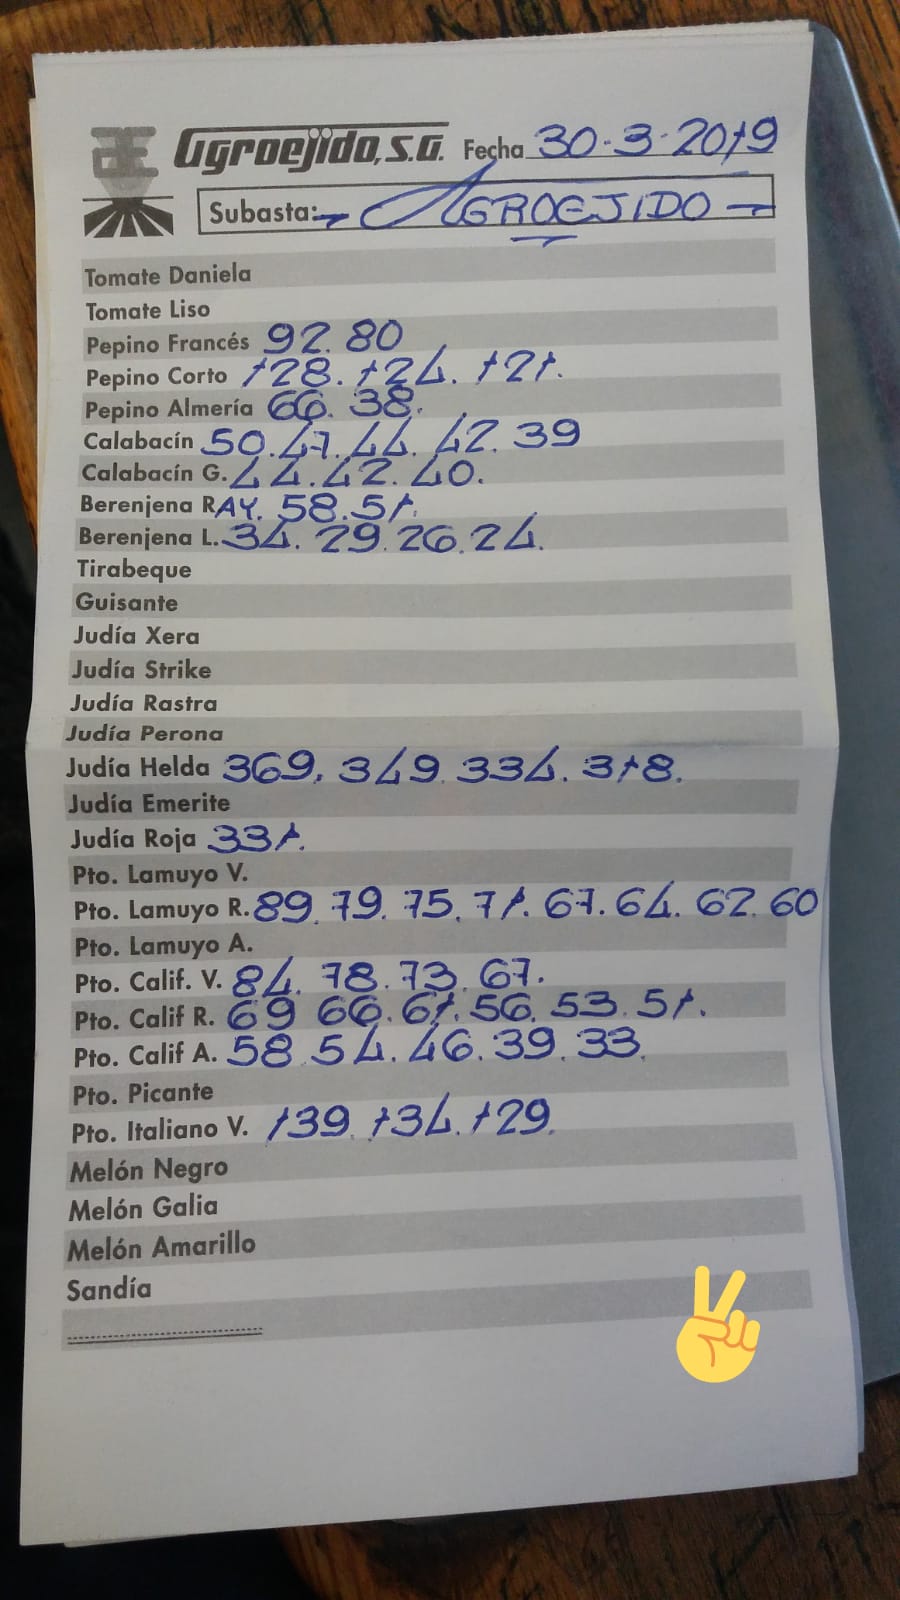 Agroejido, S.A. Fecha 30-3-2019
Subasta: AGROEJIDO
Tomate Daniela
Tomate Liso
Pepino Francés 92. 80
Pepino Corto 128. 124. 121.
Pepino Almería 66. 38.
Calabacín 50. 47. 44. 42. 39
Calabacín G. 44. 42. 40.
Berenjena RAY. 58. 51.
Berenjena L. 34. 29. 26. 24.
Tirabeque
Guisante
Judía Xera
Judía Strike
Judía Rastra
Judía Perona
Judía Helda 369. 349. 334. 318.
Judía Emerite
Judía Roja 331.
Pto. Lamuyo V.
Pto. Lamuyo R. 89. 79. 75. 71. 67. 64. 62. 60
Pto. Lamuyo A.
Pto. Calif. V. 84. 78. 73. 67.
Pto. Calif R. 69 66. 61. 56. 53. 51.
Pto. Calif A. 58. 54. 46. 39. 33.
Pto. Picante
Pto. Italiano V. 139. 134. 129.
Melón Negro
Melón Galia
Melón Amarillo
Sandía